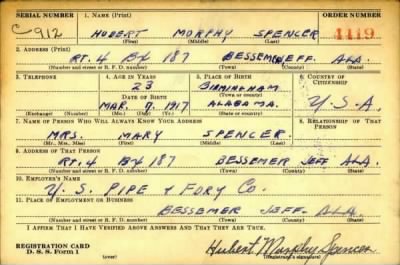 SERIAL NUMBER 1. NAME (Print) ORDER NUMBER
C-912 HUBERT MURPHY SPENCER 4419
(First) (Middle) (Last)
2. ADDRESS (Print)
RT. 4 BX 187 BESSEMER JEFF. ALA.
(Number and street or R. F. D. number) (Town) (County) (State)
3. TELEPHONE 4. AGE IN YEARS 5. PLACE OF BIRTH 6. COUNTRY OF CITIZENSHIP
23 BIRMINGHAM
DATE OF BIRTH (Town or county)
MAR. 7. 1917 ALABAMA. U.S.A.
(Exchange) (Number) (Mo.) (Day) (Yr.) (State or country)
7. NAME OF PERSON WHO WILL ALWAYS KNOW YOUR ADDRESS 8. RELATIONSHIP OF THAT PERSON
MRS. MARY SPENCER
(Mr., Mrs., Miss) (First) (Middle) (Last)
9. ADDRESS OF THAT PERSON
RT. 4 BX 187 BESSEMER JEFF ALA.
(Number and street or R. F. D. number) (Town) (County) (State)
10. EMPLOYER'S NAME
U. S. PIPE & FDRY CO.
11. PLACE OF EMPLOYMENT OR BUSINESS
BESSEMER JEFF. ALA.
(Number and street or R. F. D. number) (Town) (County) (State)
I AFFIRM THAT I HAVE VERIFIED ABOVE ANSWERS AND THAT THEY ARE TRUE.
REGISTRATION CARD
D. S. S. Form 1 (over) Hubert Murphy Spencer
(Registrant's signature)